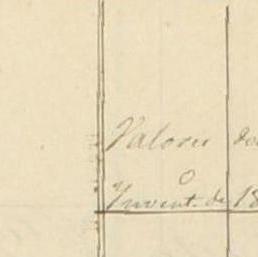 Valores do
o
Invent. de 18